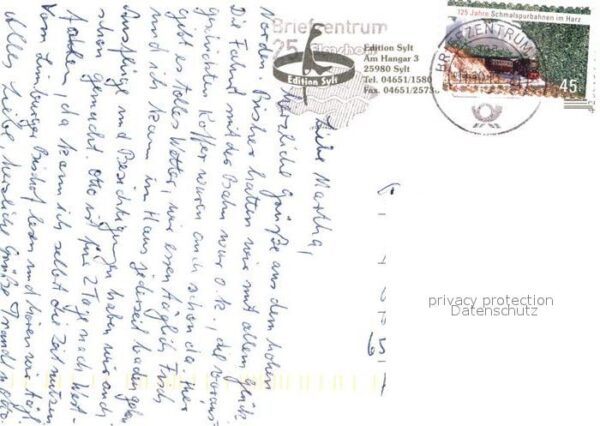 Liebe Martha,
herzliche Grüße aus dem hohen
Norden. Bisher hatten wir mit allem Glück
Die Fahrt mit der Bahn war o.k., die vorausge-
schickten Koffer waren auch schon da. Hier
gibt es tolles Wetter, wir essen täglich Fisch
und ich kann im Haus jederzeit baden gehen
Ausflüge und Besichtigungen haben wir auch
schon gemacht. Otto ist für 2 Tg nach West-
, da kann ich selbst die Zeit nutzen
Vom Limburger Bischof lesen und hören wir tägl.
Alles Liebe, herzliche Grüße
Briefzentrum
25
Edition Sylt
Edition Sylt
Am Hangar 3
25980 Sylt
Tel. 04651/1580
Fax. 04651/2573
125 Jahre Schmalspurbahnen im Harz
45
BRIEFZENTRUM
privacy protection
Datenschutz